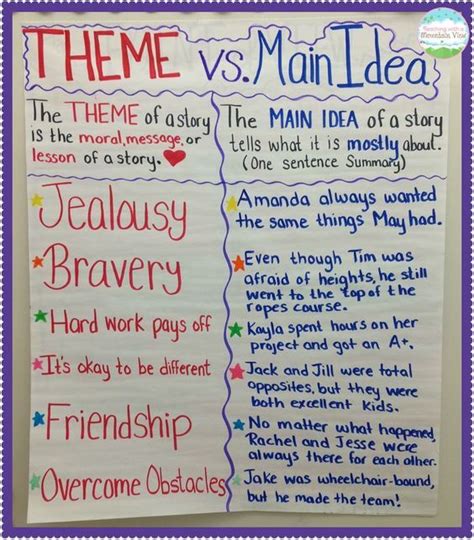 Teaching with a
Mountain View
THEME vs. Main Idea
The THEME of a story
is the moral, message, or
lesson of a story.
The MAIN IDEA of a story
tells what it is mostly about.
(One sentence Summary)
Jealousy
Bravery
Hard work pays off
It's okay to be different
Friendship
Overcome Obstacles
Amanda always wanted
the same things May had.
Even though Tim was
afraid of heights, he still
went to the top of the
ropes course.
Kayla spent hours on her
project and got an A+.
Jack and Jill were total
opposites, but they were
both excellent kids.
No matter what happened,
Rachel and Jesse were
always there for each other.
Jake was wheelchair-bound,
but he made the team!